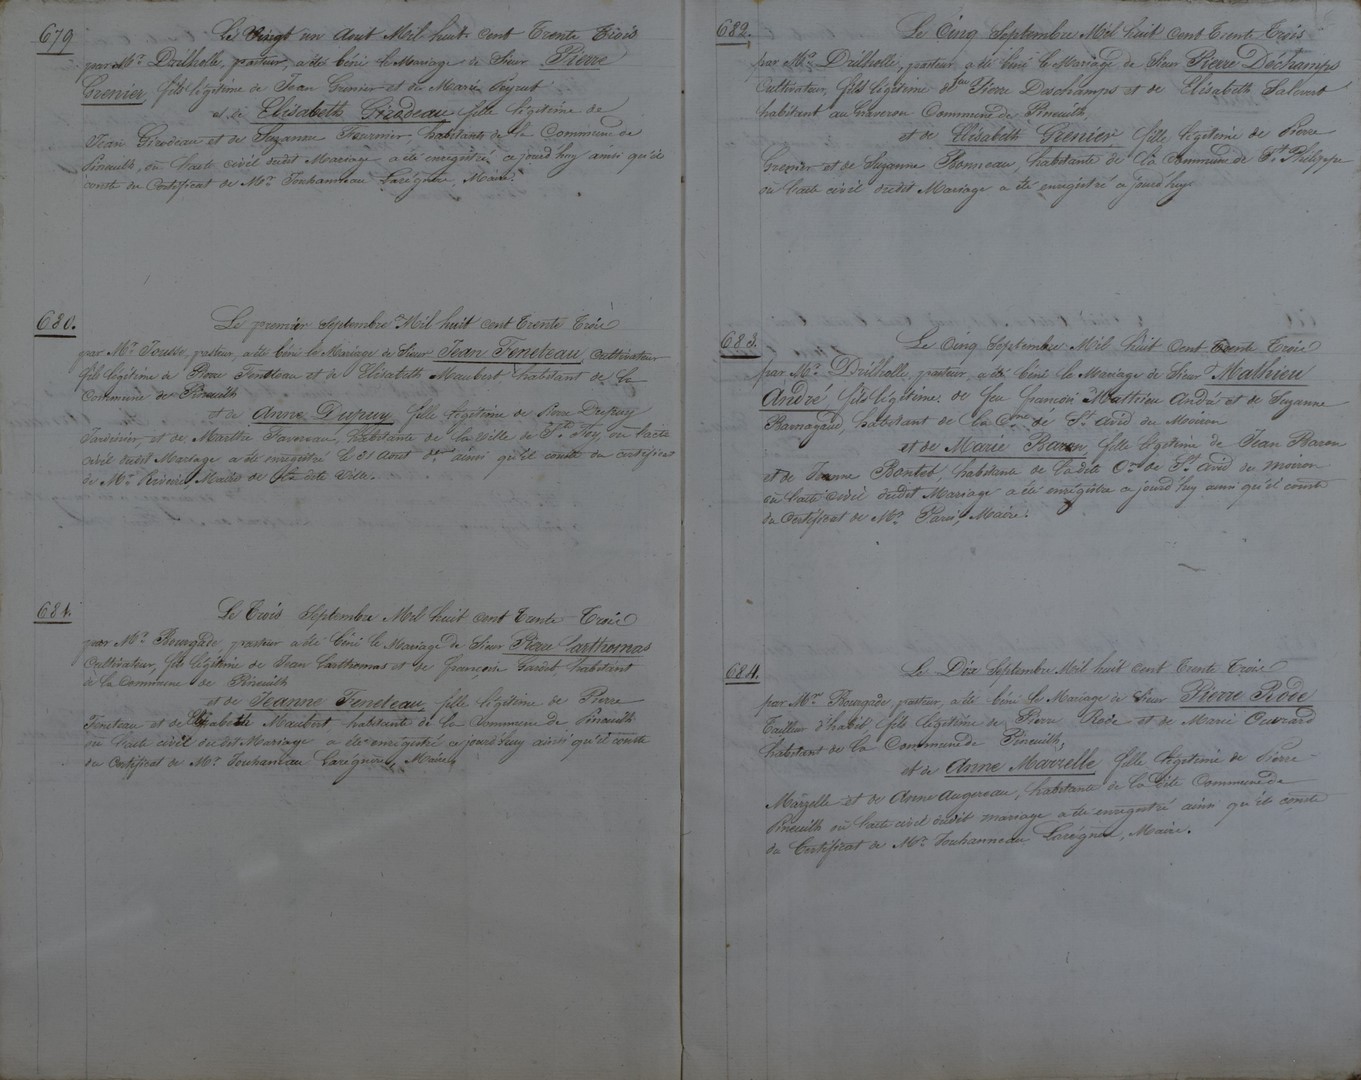 679
Le Vingt un Aout Mil huit cent Trente Trois
par Mr. Drilholle, pasteur, a été béni le Mariage de Sieur Pierre
Grenier, fils légitime de Jean Grenier et de Marie Peyrut
et de Elisabeth Girodeau fille légitime de
Jean Girodeau et de Suzanne Fournier habitante de la Commune de
Pineuilh, où l'acte civil dudit Mariage a été enregistré ce jourd'huy ainsi qu'il
conste du Certificat de Mr. Jouhanneau Laregnère, Maire.
680.
Le premier Septembre Mil huit cent Trente Trois
par Mr. Jousse, pasteur, a été béni le Mariage de Sieur Jean Feneteau, Cultivateur
fils légitime de Pierre Feneteau et de Elisabeth Maubert habitant de la
Commune de Pineuilh
et de Anne Dupuy, fille légitime de Pierre Dupuy
Jardinier et de Marthe Favereau, habitante de la Ville de Ste. Foy, où l'acte
civil dudit Mariage a été enregistré le 31 Aout dr. ainsi qu'il conste du certificat
de Mr. Rivière Maire de la dite Ville.
681.
Le Trois Septembre Mil huit cent Trente Trois
par Mr. Bourgade, pasteur a été béni le Mariage de Sieur Pierre Carthomas
Cultivateur, fils légitime de Jean Carthomas et de françoise habitant
de la Commune de Pineuilh
et de Jeanne Feneteau, fille légitime de Pierre
Feneteau et de Elisabeth Maubert habitante de la Commune de Pineuilh
où l'acte civil du dit Mariage a été enregistré ce jourd'huy ainsi qu'il conste
du Certificat de Mr. Jouhanneau Laregnère, Maire.
682.
Le Cinq Septembre Mil huit cent Trente Trois
par Mr. Drilholle, pasteur, a été béni le Mariage de Sieur Pierre Deschamps
Cultivateur, fils légitime de feu Pierre Deschamps et de Elisabeth Salomt
habitant au Graveron Commune de Pineuilh,
et de Elisabeth Grenier fille légitime de Pierre
Grenier et de Suzanne Bonneau, habitante de la Commune de St. Philippe
où l'acte civil dudit Mariage a été enregistré ce jourd'huy
683.
Le Cinq Septembre Mil huit cent Trente Trois
par Mr. Drilholle, pasteur, a été béni le Mariage de Sieur Mathieu
André fils légitime de feu françois Mathieu André et de Suzanne
Barnagaud, habitant de la Cne. de St. Avid du Moiron
et de Marie Baron, fille légitime de Jean Baron
et de Jeanne Bontet, habitante de la dite Ce. de St. Avid du moiron
où l'acte civil dudit Mariage a été enregistré ce jourd'huy ainsi qu'il conste
du Certificat de Mr. Paris, Maire.
684.
Le Dix Septembre Mil huit cent Trente Trois
par Mr. Bourgade, pasteur, a été béni le Mariage de Sieur Pierre Rode
Tailleur d'habit, fils légitime de Pierre Rode et de Marie Ouvrard
habitant de la Commune de Pineuilh,
et de Anne Marzelle fille légitime de Pierre
Marzelle et de Anne Augereau, habitante de la dite Commune de
Pineuilh où l'acte civil dudit mariage a été enregistré ainsi qu'il conste
du Certificat de Mr. Jouhanneau Laregnère, Maire.